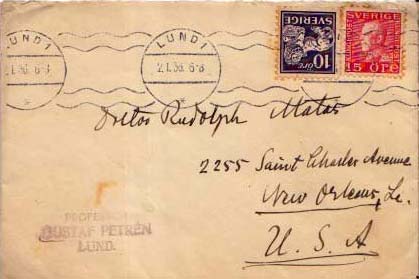 LUND 1
21.36.6-8
LUND 1
21.1.36.6-8
10 ÖRE
SVERIGE
SVERIGE
15 ÖRE
Rudolph Matas
2255 Saint Charles Avenue
New Orleans, La.
U. S. A
PROFESSOR
GUSTAF PETRÉN
LUND.